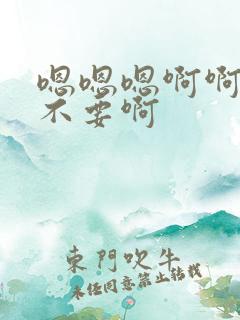 嗯嗯嗯啊啊
不要啊
东门吹牛
未经同意禁止转载